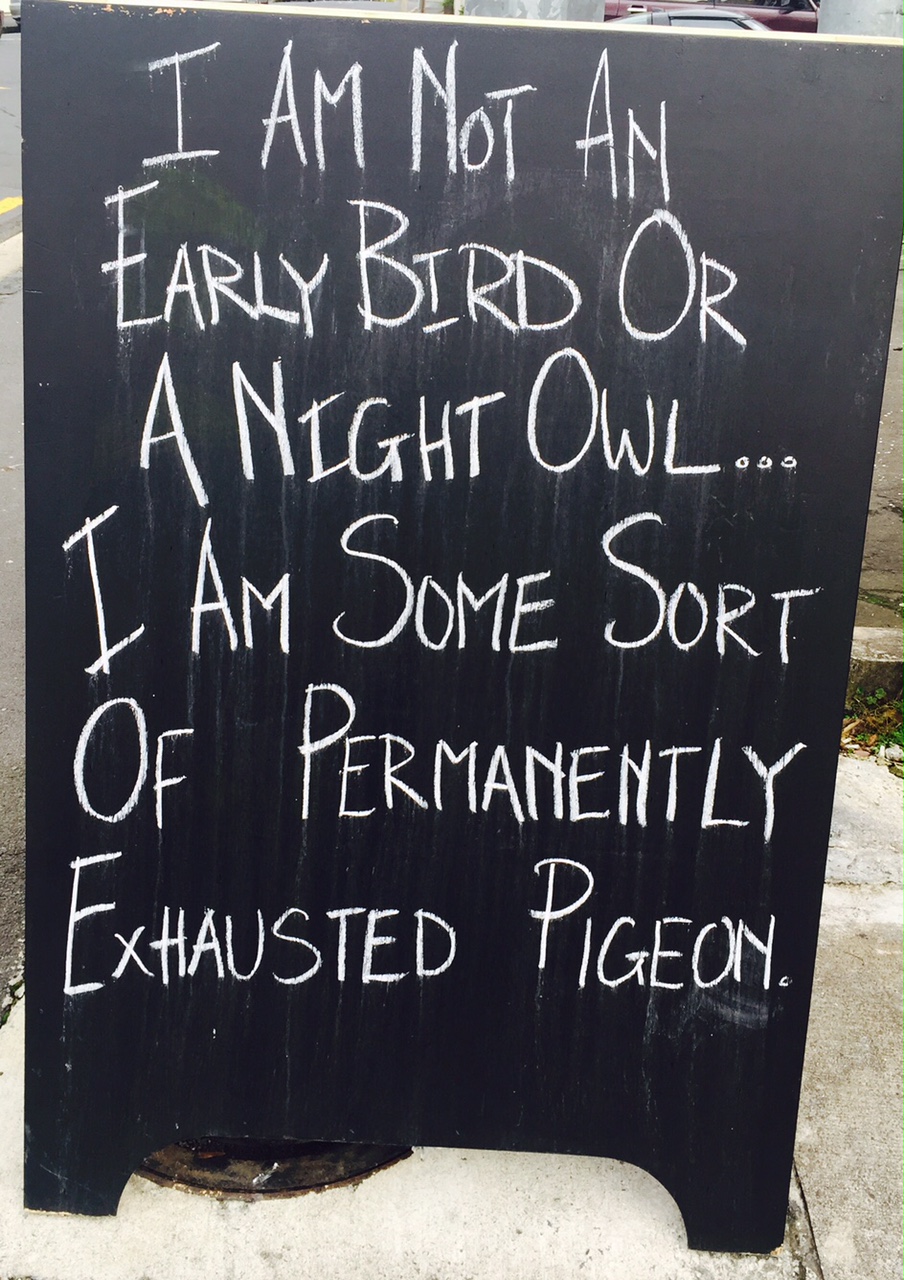 I AM NOT AN
EARLY BIRD OR
A NIGHT OWL...
I AM SOME SORT
OF PERMANENTLY
EXHAUSTED PIGEON.